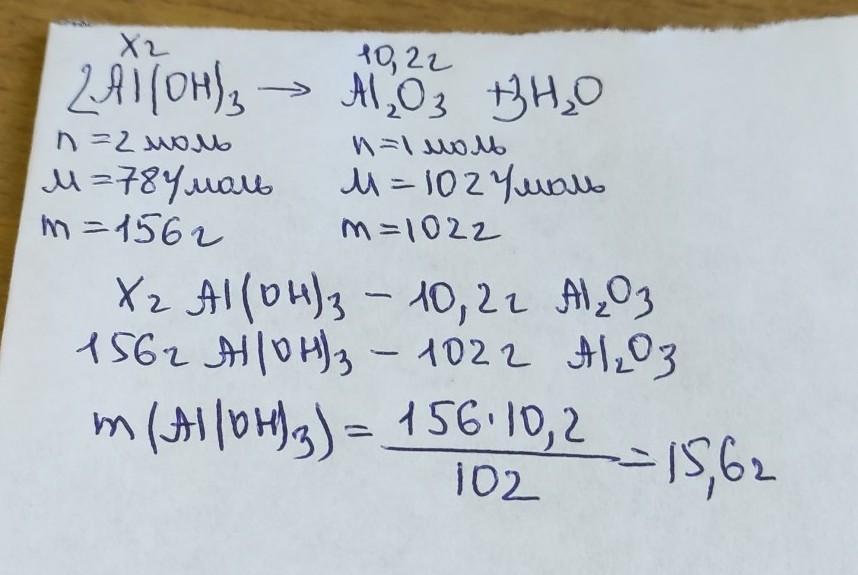 xг 10,2г
2Al(OH)₃ → Al₂O₃ + 3H₂O
n = 2 моль n = 1 моль
M = 78 г/моль M = 102 г/моль
m = 156 г m = 102 г
xг Al(OH)₃ – 10,2г Al₂O₃
156г Al(OH)₃ – 102 г Al₂O₃
m(Al(OH)₃) = 156·10,2 / 102 = 15,6г